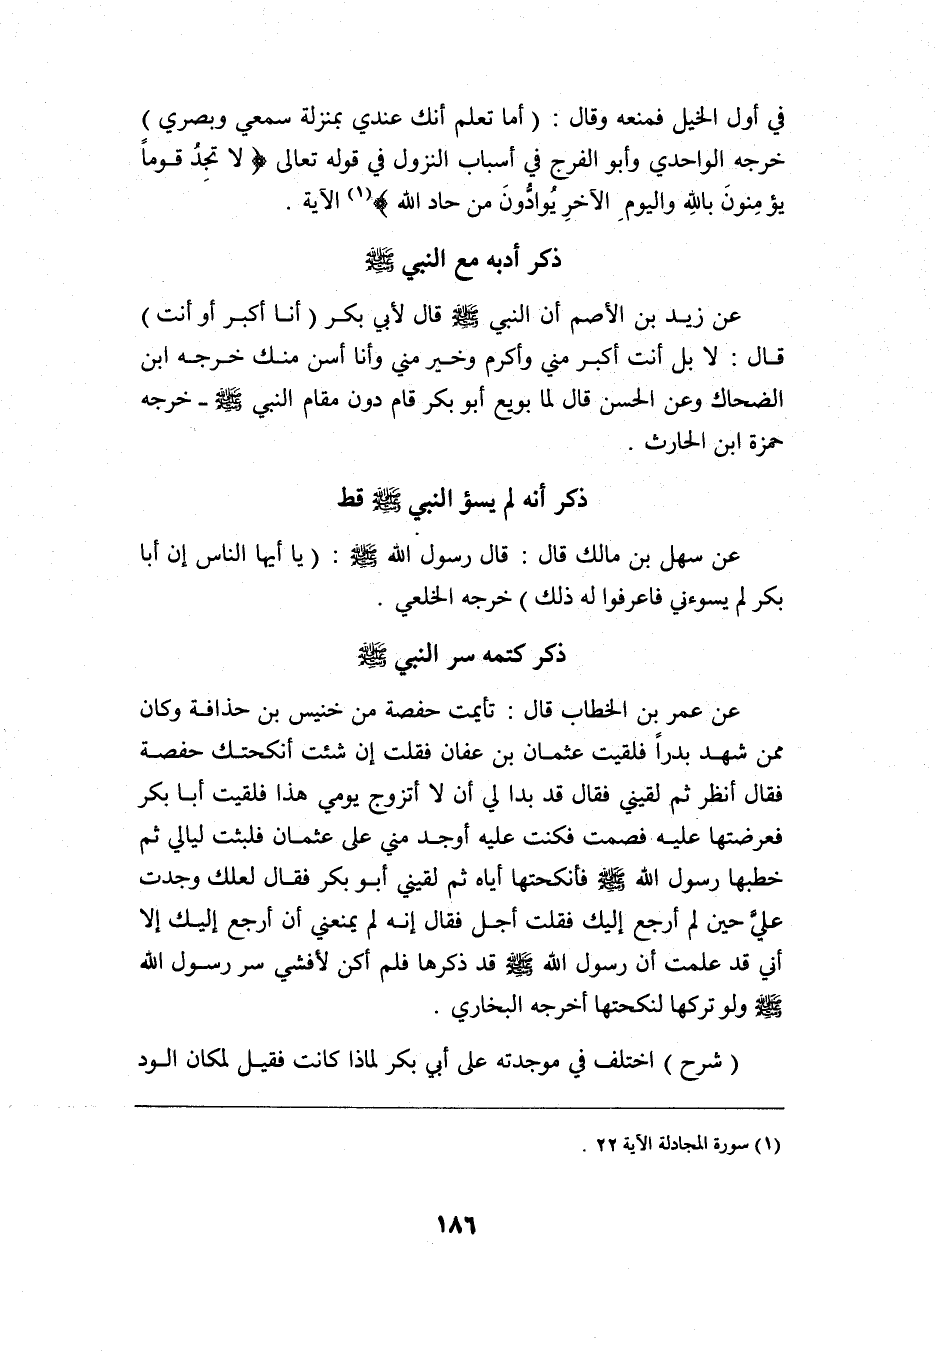 في أول الخيل فمنعه وقال : ( أما تعلم أنك عندي بمنزلة سمعي وبصري )
خرجه الواحدي وأبو الفرج في أسباب النزول في قوله تعالى ﴿ لا تجِدُ قوماً
يؤمِنونَ باللهِ واليومِ الآخرِ يُوادُّونَ من حاد الله ﴾(١) الآية .
ذكر أدبه مع النبي ﷺ
عن زيد بن الأصم أن النبي ﷺ قال لأبي بكر ( أنا أكبر أو أنت )
قال : لا بل أنت أكبر مني وأكرم وخير مني وأنا أسن منك خرجه ابن
الضحاك وعن الحسن قال لما بويع أبو بكر قام دون مقام النبي ﷺ - خرجه
حمزة ابن الحارث .
ذكر أنه لم يسؤ النبي ﷺ قط
عن سهل بن مالك قال : قال رسول الله ﷺ : ( يا أيها الناس إن أبا
بكر لم يسوءني فاعرفوا له ذلك ) خرجه الخلعي .
ذكر كتمه سر النبي ﷺ
عن عمر بن الخطاب قال : تأيمت حفصة من خنيس بن حذافة وكان
ممن شهد بدراً فلقيت عثمان بن عفان فقلت إن شئت أنكحتك حفصة
فقال أنظر ثم لقيني فقال قد بدا لي أن لا أتزوج يومي هذا فلقيت أبا بكر
فعرضتها عليه فصمت فكنت عليه أوجد مني على عثمان فلبثت ليالي ثم
خطبها رسول الله ﷺ فأنكحتها أياه ثم لقيني أبو بكر فقال لعلك وجدت
عليَّ حين لم أرجع إليك فقلت أجل فقال إنه لم يمنعني أن أرجع إليك إلا
أني قد علمت أن رسول الله ﷺ قد ذكرها فلم أكن لأفشي سر رسول الله
ﷺ ولو تركها لنكحتها أخرجه البخاري .
( شرح ) اختلف في موجدته على أبي بكر لماذا كانت فقيل لمكان الود
(١) سورة المجادلة الآية ٢٢ .
١٨٦